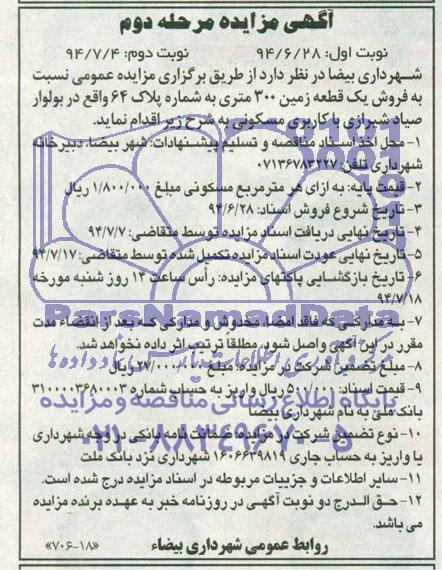 آگهی مزایده مرحله دوم
نوبت اول: ۹۴/۶/۲۸ نوبت دوم: ۹۴/۷/۴
شهرداری بیضا در نظر دارد از طریق برگزاری مزایده عمومی نسبت
به فروش یک قطعه زمین ۳۰۰ متری به شماره پلاک ۶۴ واقع در بولوار
صیاد شیرازی با کاربری مسکونی به شرح زیر اقدام نماید.
۱- محل اخذ اسناد مناقصه و تسلیم پیشنهادات: شهر بیضا، دبیرخانه
شهرداری تلفن: ۰۷۱۳۶۷۸۳۲۲۷
۲- قیمت پایه: به ازای هر متر مربع مسکونی مبلغ ۱/۸۰۰/۰۰۰ ریال
۳- تاریخ شروع فروش اسناد: ۹۴/۶/۲۸
۴- تاریخ نهایی دریافت اسناد مزایده توسط متقاضی: ۹۴/۷/۷
۵- تاریخ نهایی عودت اسناد مزایده تکمیل شده توسط متقاضی: ۹۴/۷/۱۷
۶- تاریخ بازگشایی پاکتهای مزایده: رأس ساعت ۱۴ روز شنبه مورخه
۹۴/۷/۱۸
ParsNamadData
۷- به مدارکی که فاقد امضا، مخدوش و مدارکی که بعد از انقضاء مدت
مقرر در این آگهی واصل شود، مطلقا ترتیب اثر داده نخواهد شد.
۸- مبلغ تضمین شرکت در مزایده: مبلغ ۲۷/۰۰۰/۰۰۰ ریال
۹- قیمت اسناد: ۵۰۰/۰۰۰ ریال واریز به حساب شماره ۳۱۰۰۰۰۳۶۸۰۰۳
پایگاه اطلاع رسانی مناقصه و مزایده
بانک ملی به نام شهرداری بیضا
۰۲۱-۸۸۳۴۹۶۷۰-۵
۱۰- نوع تضمین شرکت در مزایده: ضمانت نامه بانکی در وجه شهرداری
یا واریز به حساب جاری ۱۶۰۶۶۳۹۸۱۹ شهرداری نزد بانک ملت
۱۱- سایر اطلاعات و جزییات مربوطه در اسناد مزایده درج شده است.
۱۲- حق الدرج دو نوبت آگهی در روزنامه خبر به عهده برنده مزایده
می باشد.
روابط عمومی شهرداری بیضاء «۷۰۶-۱۸»